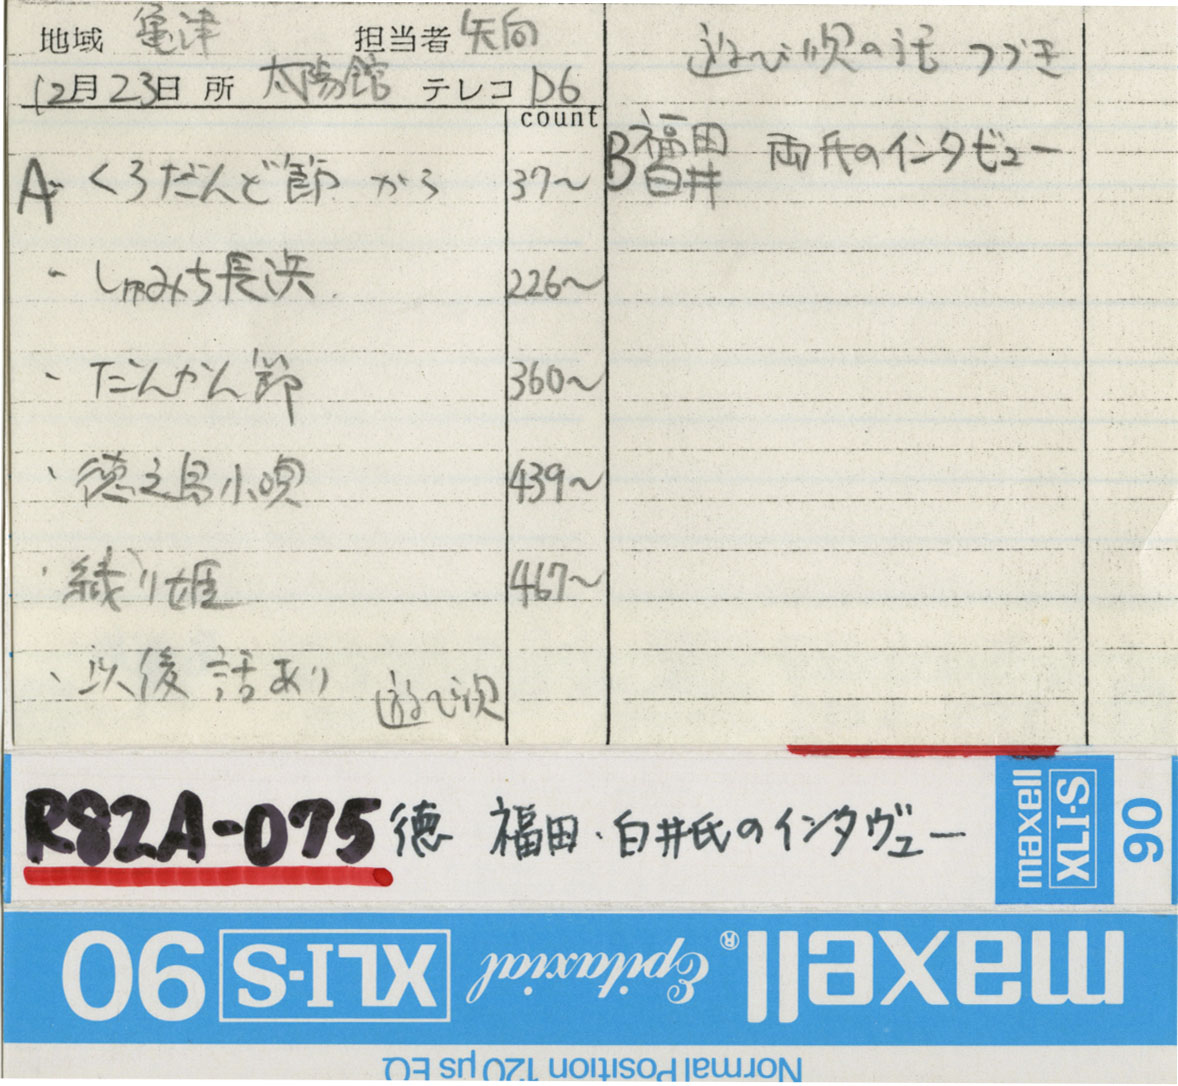 地域 亀津 担当者 矢向
12月23日 所 太陽館 テレコ D6
count
A くろだんど節 から 37〜
・しゅみち長浜 226〜
・だんかん節 360〜
・徳之島小唄 439〜
・織り姫 467〜
・以後 話あり 遊び唄
遊び唄の話 つづき
B 福田 白井 両氏のインタビュー
R82A-075 徳 福田・白井氏のインタヴュー
maxell XLI-S 90
maxell Epitaxial XLI-S 90
Normal Position 120μs EQ